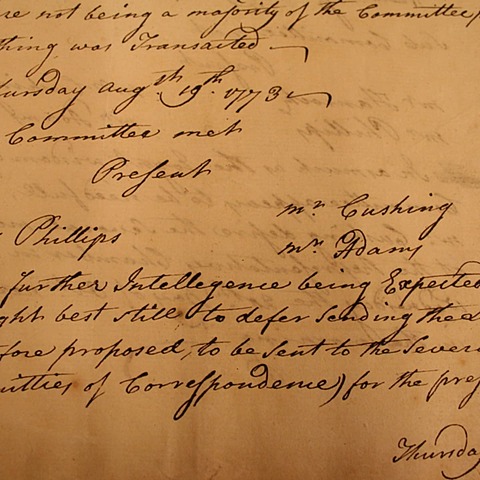 re not being a majority of the Committee
thing was Transacted
ursday augth 19th 1773
Committee met
Present
mr Cushing
Phillips
mr Adams
further Intellegence being Expected
ght best still to defer sending the
fore proposed, to be sent to the Severa
itties of Correspondence) for the pres
Thursda